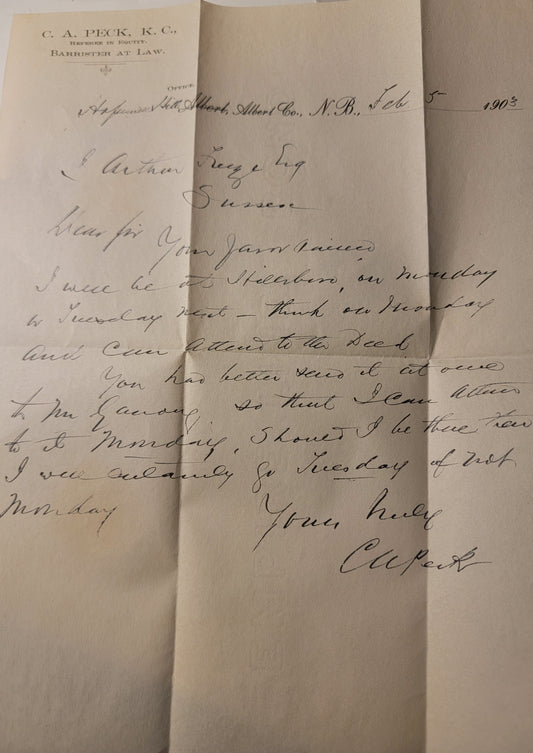 C. A. PECK, K. C.,
REFEREE IN EQUITY.
BARRISTER AT LAW.
OFFICE
Hopewell Hill, Albert, Albert Co., N. B., Feb 5 1903
J Arthur Freeze Esq
Sussex
Dear Sir
Your favor received
I will be at Hillsboro, on Monday
or Tuesday next – think on Monday
and can attend to the Deed
You had better send it at once
to Mr Ganong so that I can attend
to it Monday, Should I be there then
I will certainly go Tuesday if not
Monday
Yours truly
C A Peck